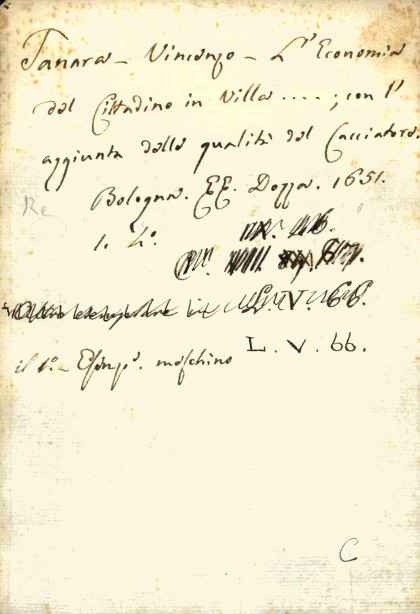 Tanara - Vincenzo - L'Economia
del Cittadino in Villa .... ; con l'
aggiunta delle qualità del Cacciatore.
Bologna. EE. Dozza. 1651.
Re
1. 4°.
L. V. 66.
L. V. 66.
il 1°. - Esemp°. meschino
C